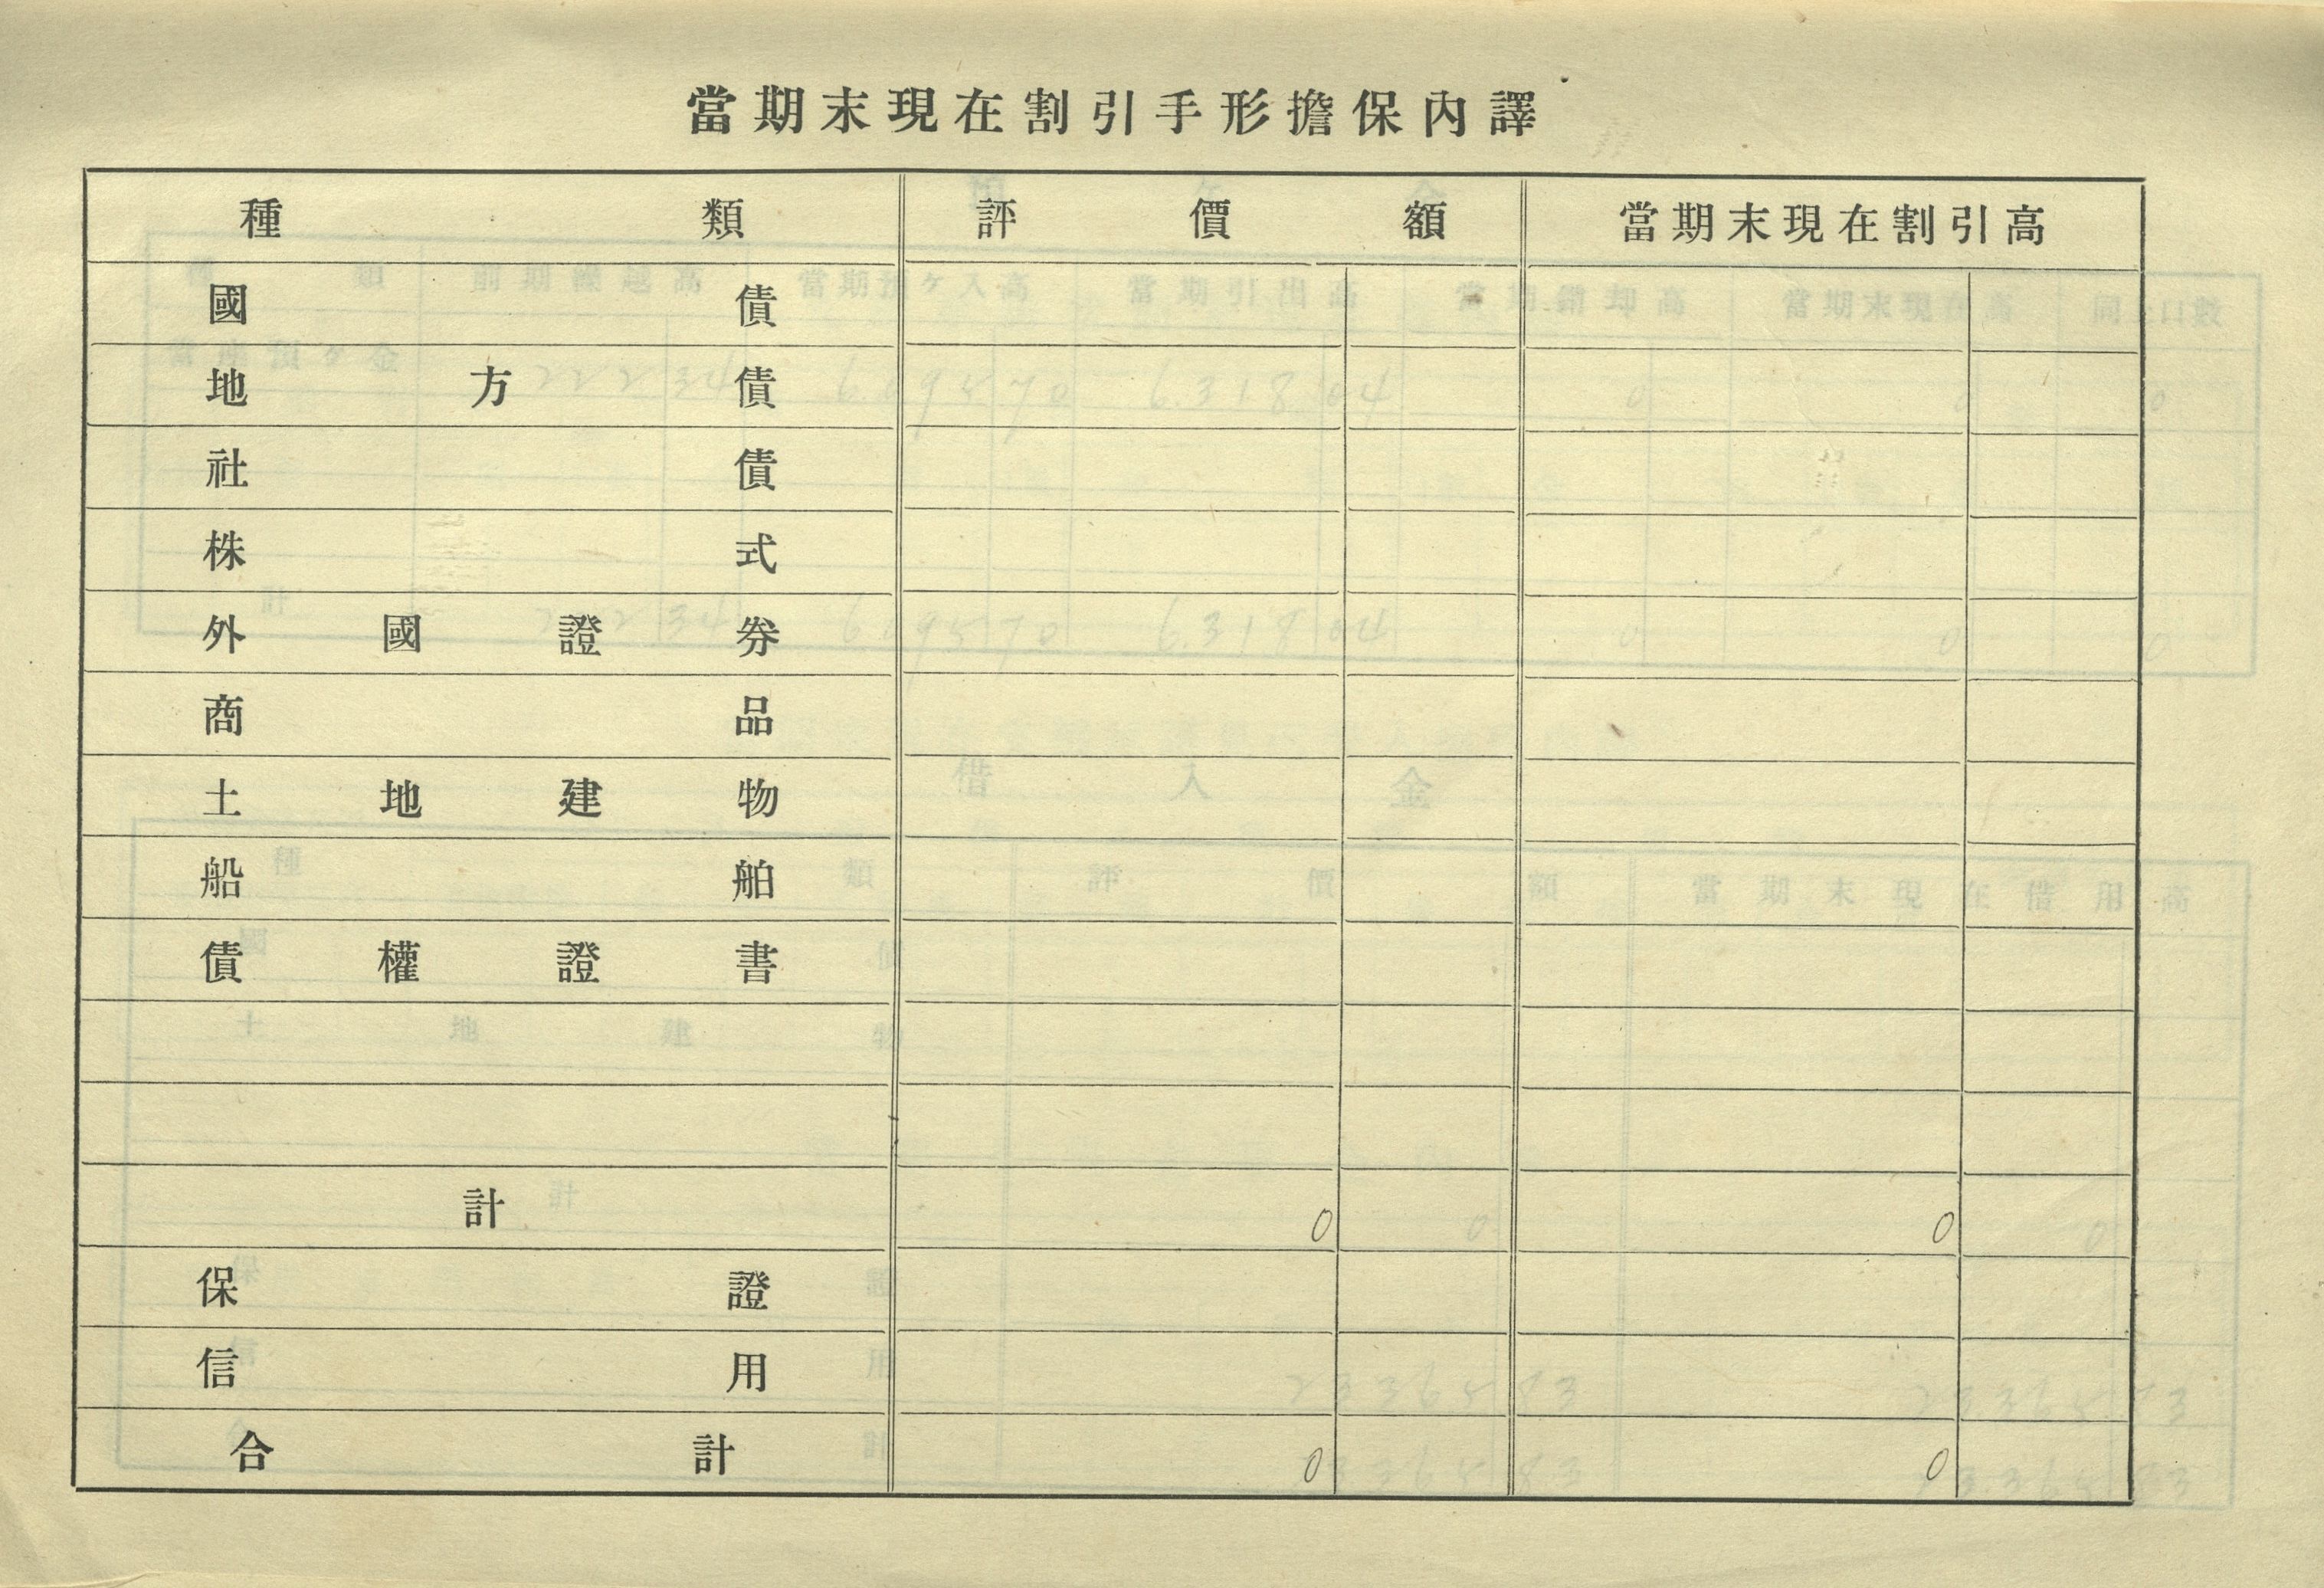 當期末現在割引手形擔保內譯
種類 評價額 當期末現在割引高
國債
地方債
社債
株式
外國證券
商品
土地建物
船舶
債權證書
計 0 0
保證
信用
合計 0 0